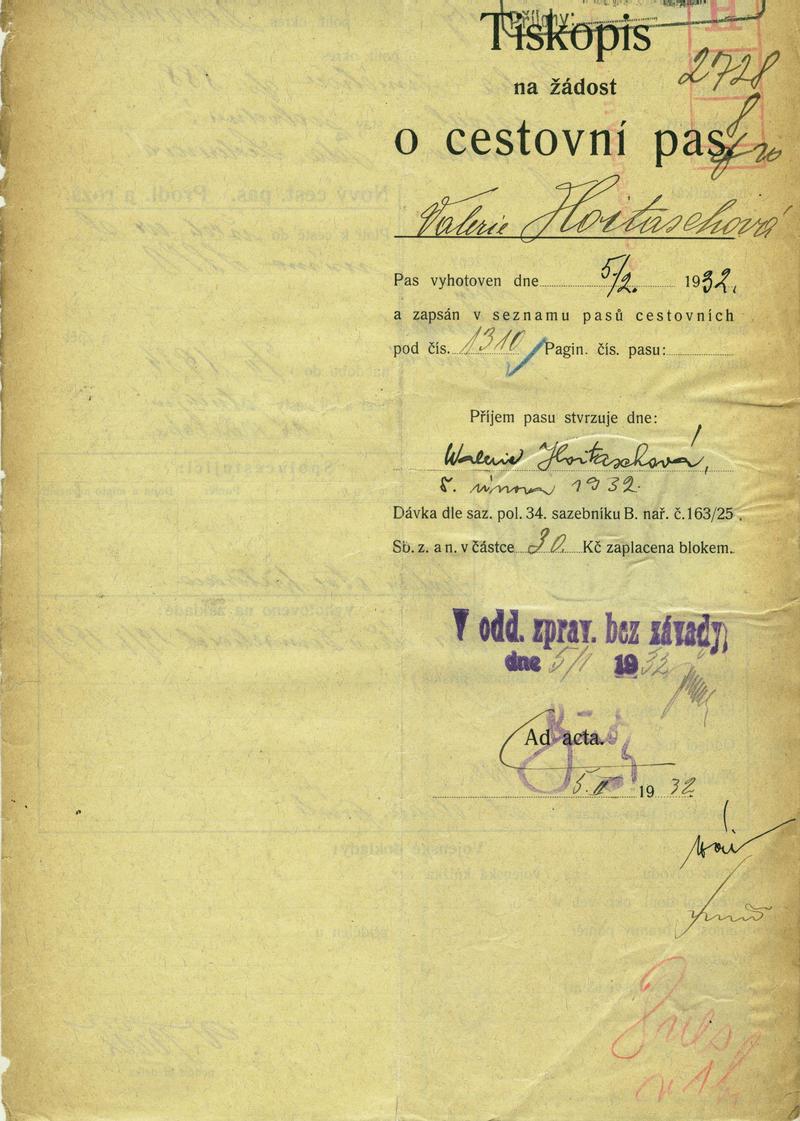 Přílohy:
Tiskopis
na žádost
2728
o cestovní pas.
Valerie Hoitaschová
Pas vyhotoven dne 5/2. 1932.
a zapsán v seznamu pasů cestovních
pod čís. 1310 Pagin. čís. pasu:
Příjem pasu stvrzuje dne:
Valerie Hoitaschová,
5. února 1932.
Dávka dle saz. pol. 34. sazebníku B. nař. č. 163/25
Sb. z. a n. v částce 30. Kč zaplacena blokem.
V odd. zprav. bez závady,
dne 5/1 1932
Ad acta.
5. II 1932
Dnes
v 1h